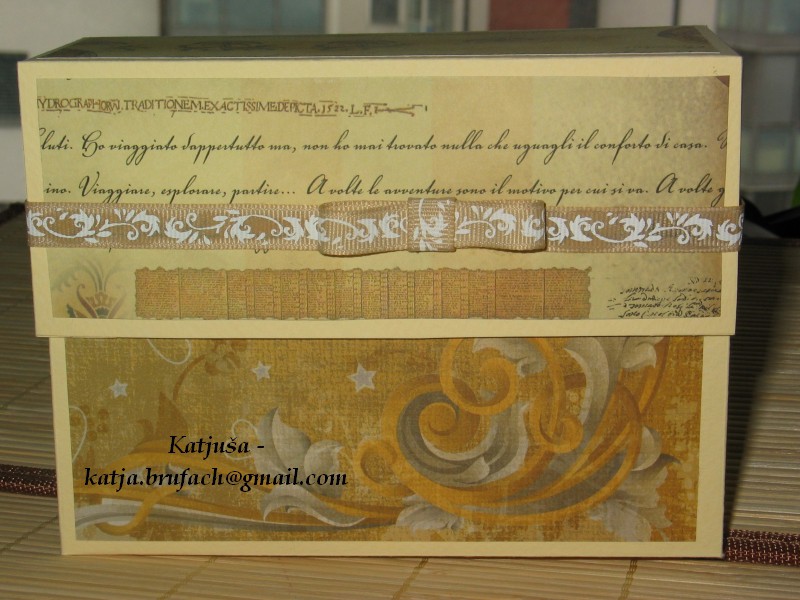 YDROGRAPHORVM. TRADITIONEM. EXACTISSIME. DEPICTA. 1522. L. F.
luti. Ho viaggiato dappertutto ma, non ho mai trovato nulla che uguagli il conforto di casa.
ino. Viaggiare, esplorare, partire... A volte le avventure sono il motivo per cui si va. A volte
Katjuša -
katja.brufach@gmail.com